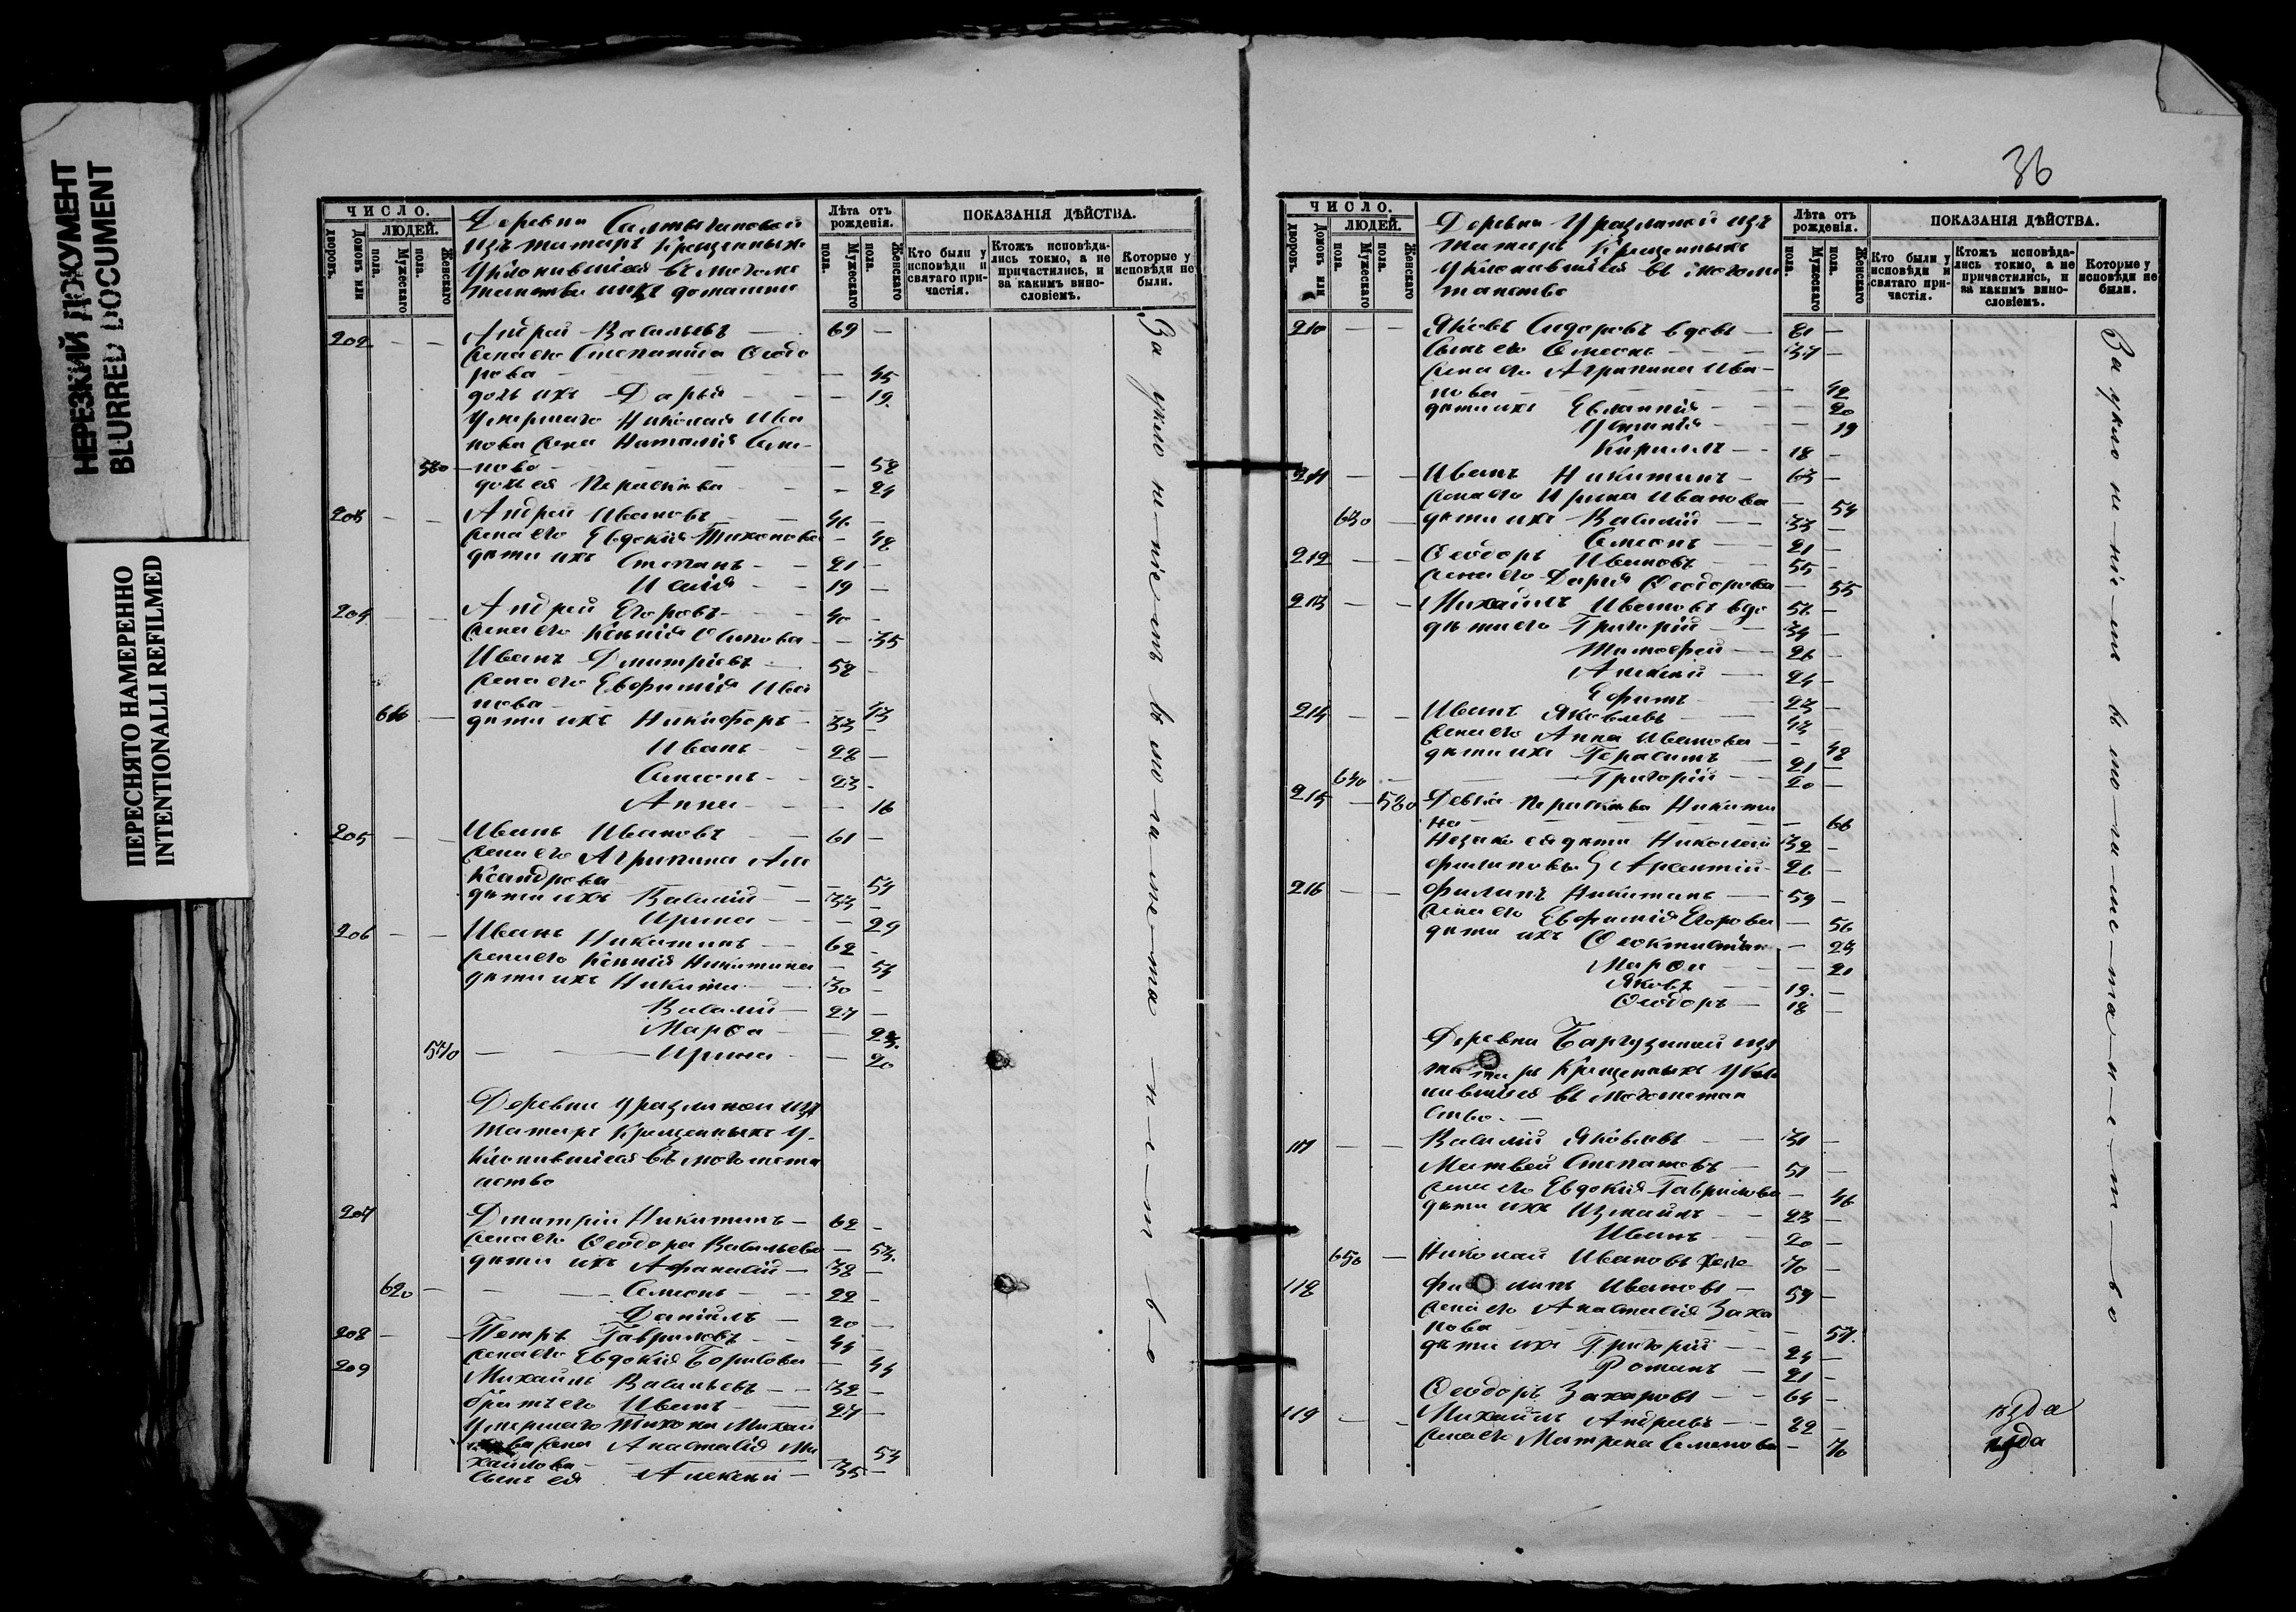 НЕРЕЗКИЙ ДОКУМЕНТ
BLURRED DOCUMENT
ПЕРЕСНЯТО НАМЕРЕННО
INTENTIONALLI REFILMED
ЧИСЛО.
ЛЮДЕЙ.
Домовъ или дворовъ.
Мужескаго пола.
Женскаго пола.
Деревни
изъ татаръ крещенныхъ
уклонившiеся въ магоме
танство ихъ домашнiе
Лѣта отъ рожденія.
Мужескаго пола.
Женскаго пола.
ПОКАЗАНІЯ ДѢЙСТВА.
Кто были у исповѣди и святаго причастія.
Ктожъ исповѣдались токмо, а не причастились, и за какимъ винословіемъ.
Которые у исповѣди не были.
202 — — Андрей Васильевъ — 69 —
жена его Степанида Ѳеодо
рова — — 45
дочь ихъ Дарья — — 19.
умершаго Николая Ива
нова жена Наталiя Семе-
580 — нова — — 58
дочь ея Параскева — — 24
203 — — Андрей Ивановъ — 46 —
жена его Евдокiя Тихонова — 48
дѣти ихъ Степанъ — 21 —
19 —
204 — — Андрей Егоровъ — 40 —
жена его Ксенiя — — 35
Иванъ Дмитрiевъ — 58 —
жена его Евфимiя Ива
нова —
дѣти ихъ Никифоръ — 33 —
Иванъ — 28 —
Симеонъ — 23 —
Анна — — 16
205 — — Иванъ Ивановъ — 61 —
жена его Агрипина Але
ксандрова — — 54
дѣти ихъ Василiй — 33 —
Ирина — 29
206 — — Иванъ Никитинъ — 62 —
жена его Ксенiя Никитина — 54
дѣти ихъ Никита — 30 —
Василiй — 27 —
Марѳа — 23.
570 — Ирина — — 20
Деревни Уразлиной изъ
татаръ крещенныхъ у-
клонившiеся въ магомета
нство
207 Дмитрiй Никитинъ — 62 —
жена его Ѳеодора Васильева — 53.
дѣти ихъ Афанасiй — 38 —
620 — Симеонъ — 22 —
Данiилъ — 20 —
208 — Петръ Гавриловъ — 44 —
жена его Евдокiя Борисова — 44
209 Михаилъ Васильевъ — 32 —
братъ его Иванъ — 27 —
умершаго Тихона Михаи
лова жена Анастасiя Ми
хайлова — 53
сынъ ея Алексѣй — 35 —
За уклоненiемъ въ магометанство
36
ЧИСЛО.
ЛЮДЕЙ.
Домовъ или дворовъ.
Мужескаго пола.
Женскаго пола.
Деревни Уразлиной изъ
татаръ крещенныхъ
уклонившiеся въ магоме
танство
Лѣта отъ рожденія.
Мужескаго пола.
Женскаго пола.
ПОКАЗАНІЯ ДѢЙСТВА.
Кто были у исповѣди и святаго причастія.
Ктожъ исповѣдались токмо, а не причастились, и за какимъ винословіемъ.
Которые у исповѣди не были.
210 — — Яковъ Сидоровъ вдовъ — 81 —
сынъ его Симеонъ — 37 —
жена его Агрипина Ива-
нова — — 42
дѣти ихъ Евланпiя — — 20
Устинiя — 19
Кирилъ — 18 —
211 — — Иванъ Никитинъ — 63 —
жена его Ирина Иванова — 54
630 — дѣти ихъ Василiй — 33 —
Симеонъ — 21 —
212 — — Ѳеодоръ Ивановъ — 55 —
жена его Дарiя Ѳеодорова — 55
213 — — Михаилъ Ивановъ вдо — 56 —
дѣти его Григорiй — 34 —
Тимофей — 26 —
Алексѣй — 24 —
Ефимъ — 23 —
214 — — Иванъ Яковлевъ — 43 —
жена его Анна Иванова — 48
дѣти ихъ Герасимъ — 21 —
640 — Григорiй — 20 —
215 — 580 Девка Параскева Никити
на — — 66
незако ея дѣти Николай 32 —
Филиповы Арсентiй 26 —
216 — — Филипъ Никитинъ — 59 —
жена его Евфимiя Егорова — 56
дѣти ихъ — 23
Марѳа — — 21
Яковъ — 19. —
Ѳеодоръ — 18 —
Деревни Баргузиной изъ
татаръ крещенныхъ укло
нившiеся въ магометан
ство. —
117 — — Василiй Яковлевъ — 31 —
Матвей Степановъ — 51 —
жена его Евдокiя Гаврилова — 46
дѣти ихъ Измаилъ — 23 —
Иванъ — 20 —
650 — Николай Ивановъ — 70 —
118 Филипъ Ивановъ — 59 —
жена его Анастасiя Заха
рова — — 57.
дѣти ихъ Григорiй — 24 —
Романъ — 21 —
Ѳеодоръ Захаровъ — 64 —
119 — — Михаилъ Андреевъ — 82 —
жена его Матрена Семенова — 70
За уклоненiемъ въ магометанство